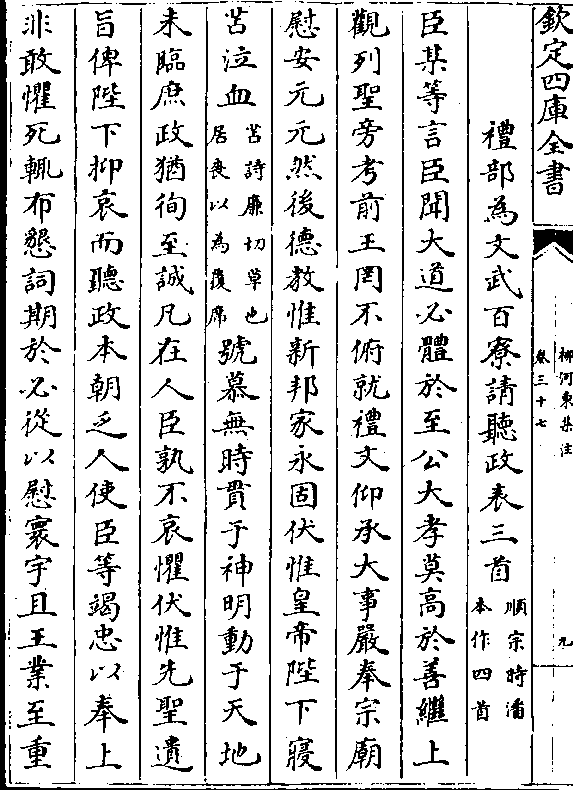 欽定四庫全書
柳河東集注
卷三十七
九
禮部為文武百寮請聽政表三首順宗時潘本作四首
臣某等言臣聞大道必體於至公大孝莫高於善繼上
觀列聖旁考前王罔不俯就禮文仰承大事嚴奉宗廟
慰安元元然後德教惟新邦家永固伏惟皇帝陛下寢
苫泣血苫詩廉切草也居喪以為覆席號慕無時貫于神明動于天地
未臨庶政猶徇至誠凡在人臣孰不哀懼伏惟先聖遺
旨俾陛下抑哀而聽政本朝乏人使臣等竭忠以奉上
非敢懼死輒布懇詞期於必從以慰寰宇且王業至重